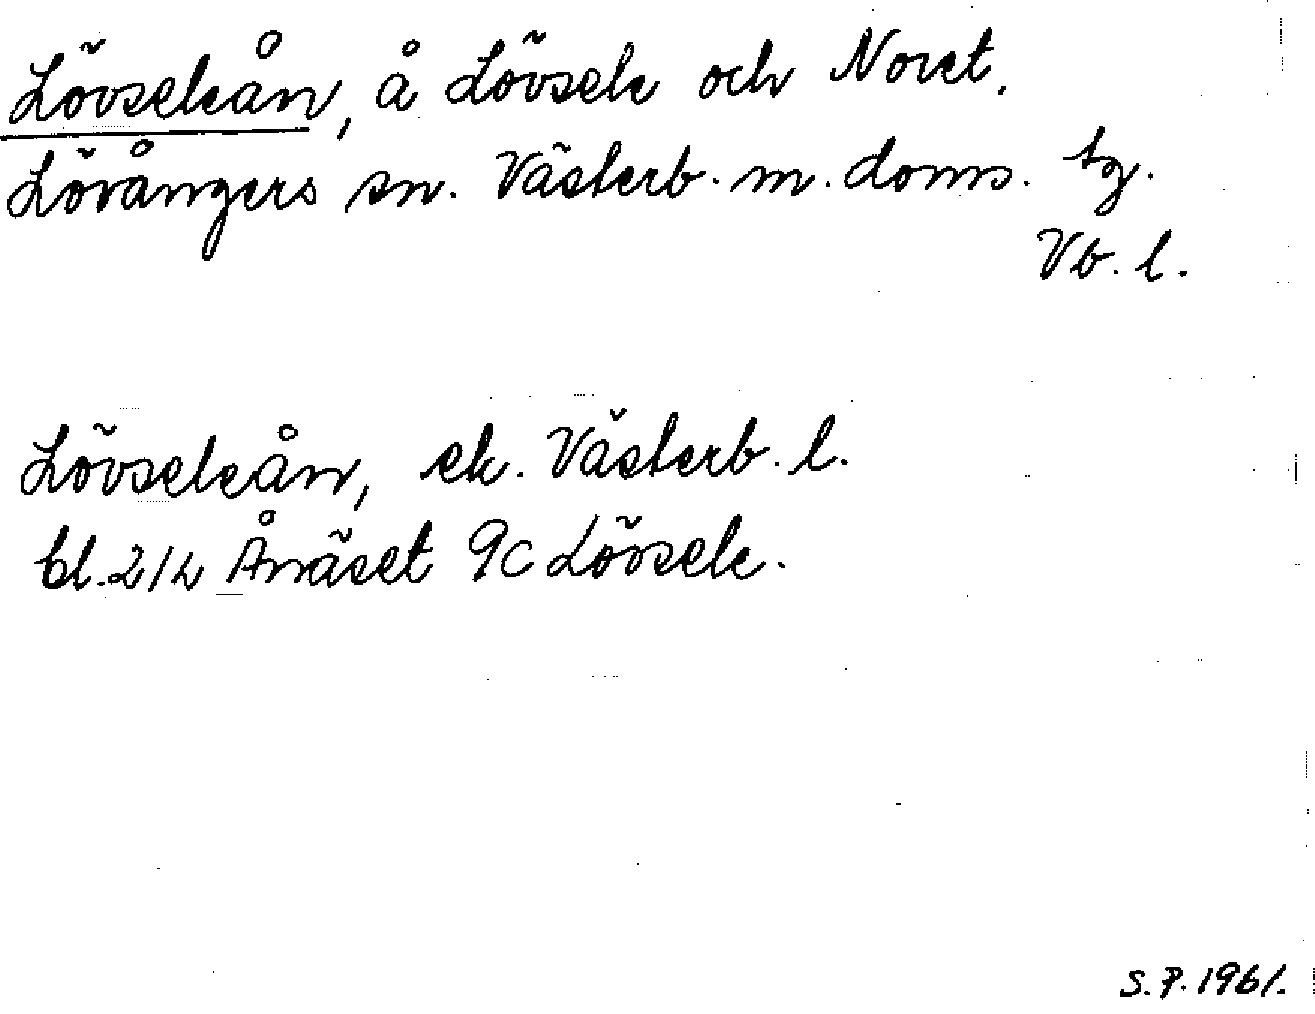 Lövseleån, å Lövsele och Noret.
Lövångers sn. Västerb. m. doms. tg.
Vb. l.
Lövseleån, ek. Västerb. l.
bl. 21L Ånäset 9c Lövsele.
S.P. 1961.